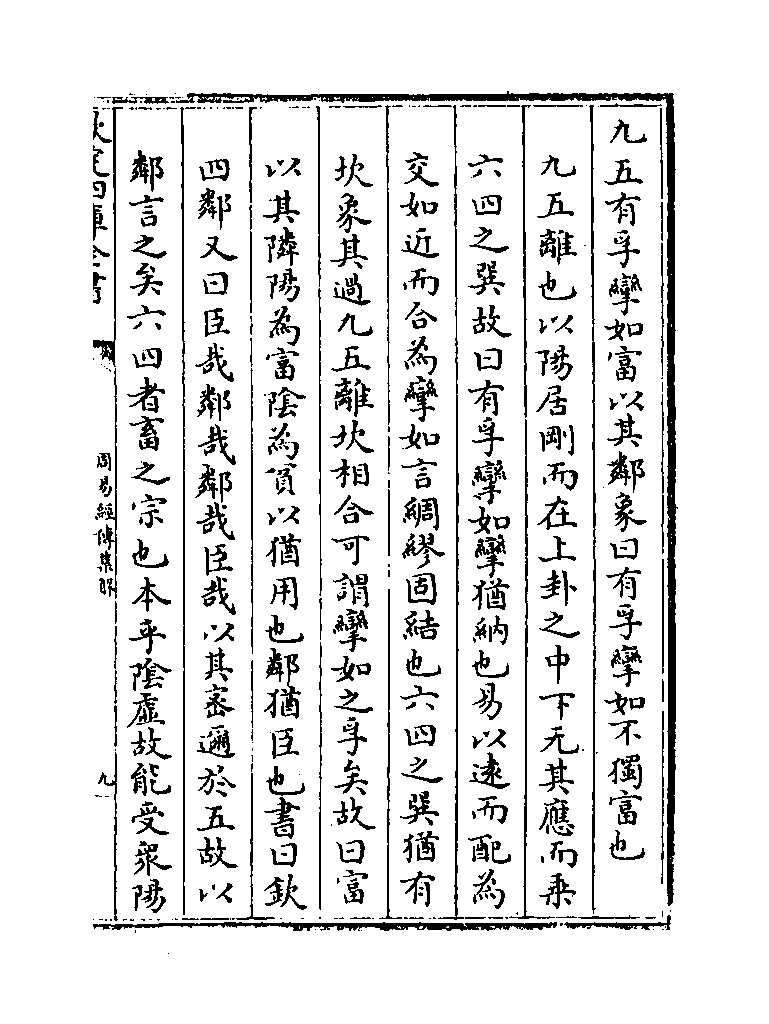 九五有孚攣如富以其鄰象曰有孚攣如不獨富也
九五離也以陽居剛而在上卦之中下无其應而乗
六四之巽故曰有孚攣如攣猶納也易以逺而配為
交如近而合為攣如言綢繆固結也六四之巽猶有
坎象其過九五離坎相合可謂攣如之孚矣故曰富
以其隣陽為富陰為貧以猶用也鄰猶臣也書曰欽
四鄰又曰臣哉鄰哉鄰哉臣哉以其宻邇於五故以
鄰言之矣六四者畜之宗也本乎陰虚故能受衆陽
欽定四庫全書
周易經傳集解
九